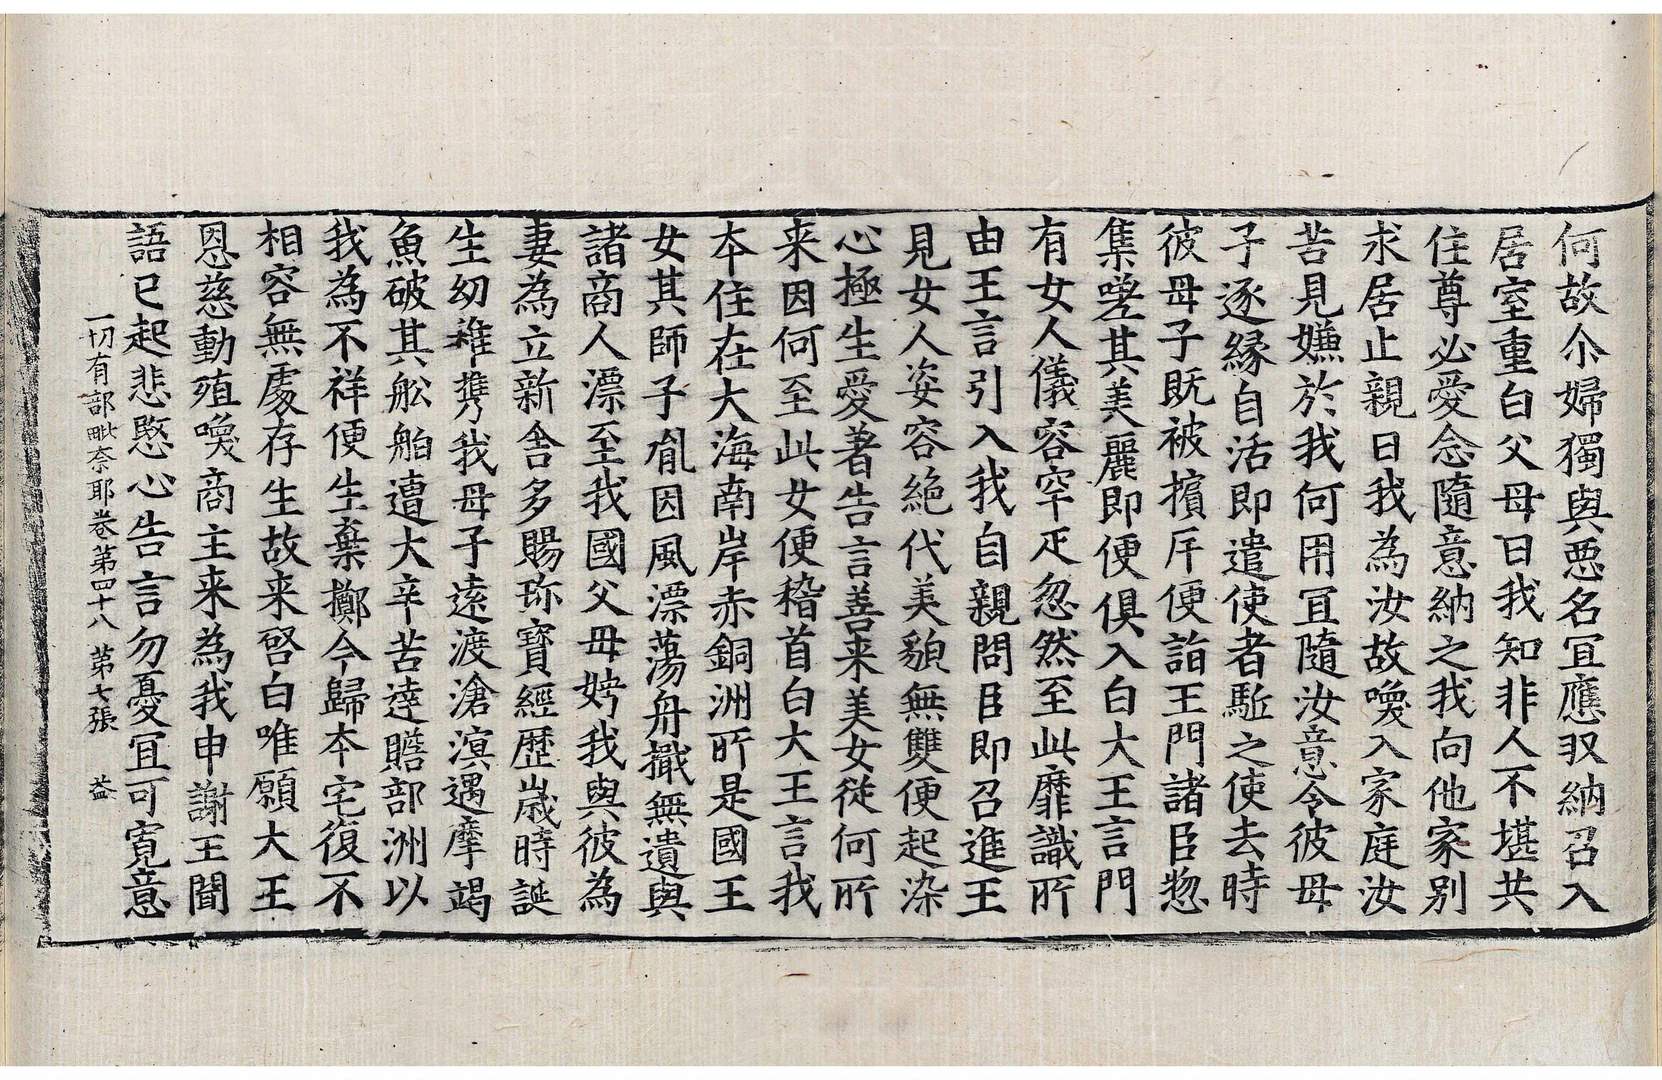 何故尒婦獨與惡名冝應収納召入
居室重白父母曰我知非人不堪共
住尊必愛念隨意納之我向他家别
求居止親曰我為汝故喚入家庭汝
苦見嫌於我何用冝隨汝意令彼母
子逐縁自活即遣使者駈之使去時
彼母子既被擯斥便詣王門諸臣惣
集嗟其美麗即便俱入白大王言門
有女人儀容罕疋忽然至此靡識所
由王言引入我自親問臣即召進王
見女人姿容絶代美貌無雙便起染
心極生愛著告言善来美女從何所
来因何至此女便稽首白大王言我
本住在大海南岸赤銅洲所是國王
女其師子胤因風漂蕩舟檝無遺與
諸商人漂至我國父母娉我與彼為
妻為立新舍多賜珎寳經歴歲時誕
生幼稚携我母子遠渡滄溟遇摩竭
魚破其舩舶遭大辛苦達贍部洲以
我為不祥便生棄擲今歸本宅復不
相容無處存生故来啓白唯願大王
恩慈動殖喚商主来為我申謝王聞
語已起悲愍心告言勿憂冝可寛意
一切有部毗奈耶卷第四十八 第七張 益